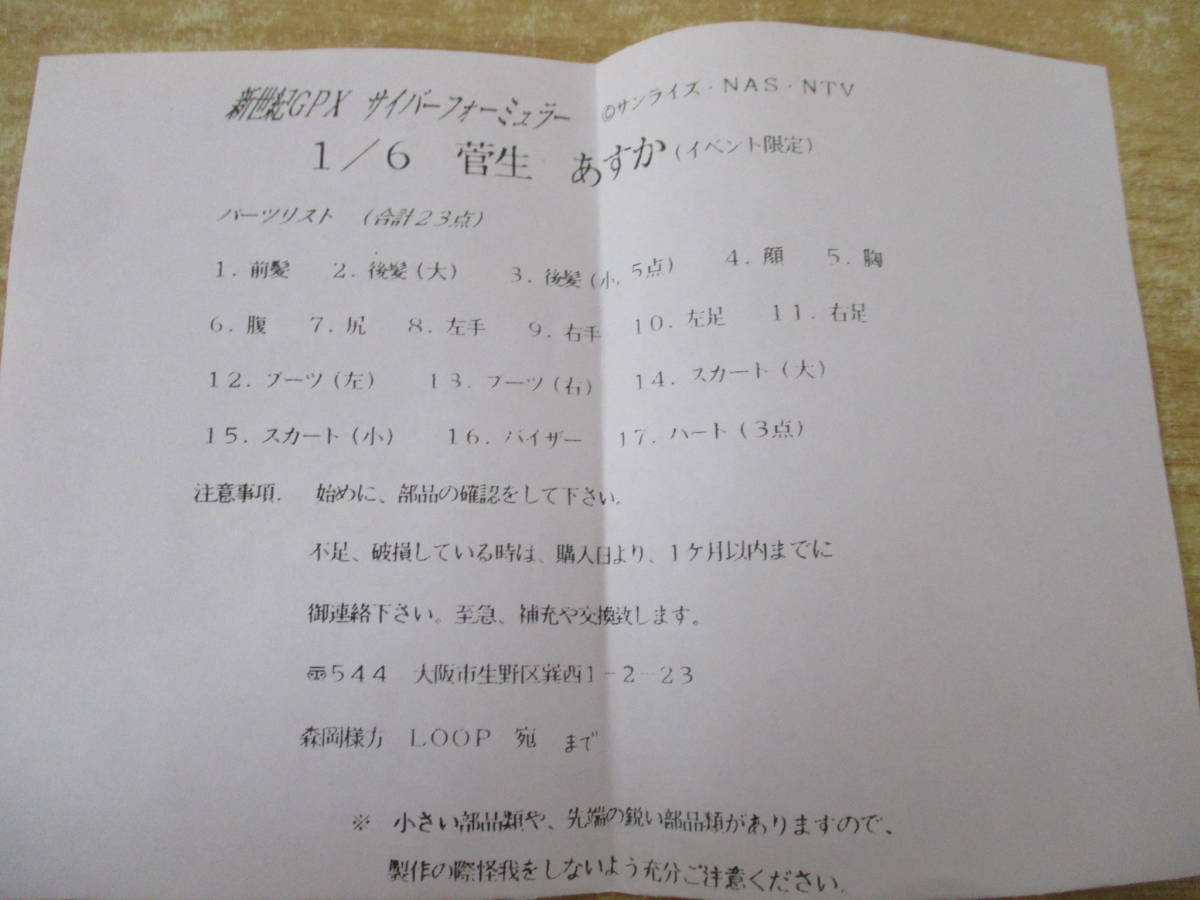 新世紀GPX サイバーフォーミュラー ©サンライズ・NAS・NTV
1／6 菅生 あすか（イベント限定）
パーツリスト （合計23点）
1．前髪 2．後髪（大） 3．後髪（小，5点） 4．顔 5．胸
6．腹 7．尻 8．左手 9．右手 10．左足 11．右足
12．ブーツ（左） 13．ブーツ（右） 14．スカート（大）
15．スカート（小） 16．バイザー 17．ハート（3点）
注意事項． 始めに、部品の確認をして下さい。
不足、破損している時は、購入日より、1ケ月以内までに
御連絡下さい。至急、補充や交換致します。
〠544 大阪市生野区巽西1－2－23
森岡様方 LOOP 宛 まで
※ 小さい部品類や、先端の鋭い部品類がありますので、
製作の際怪我をしないよう充分ご注意ください。